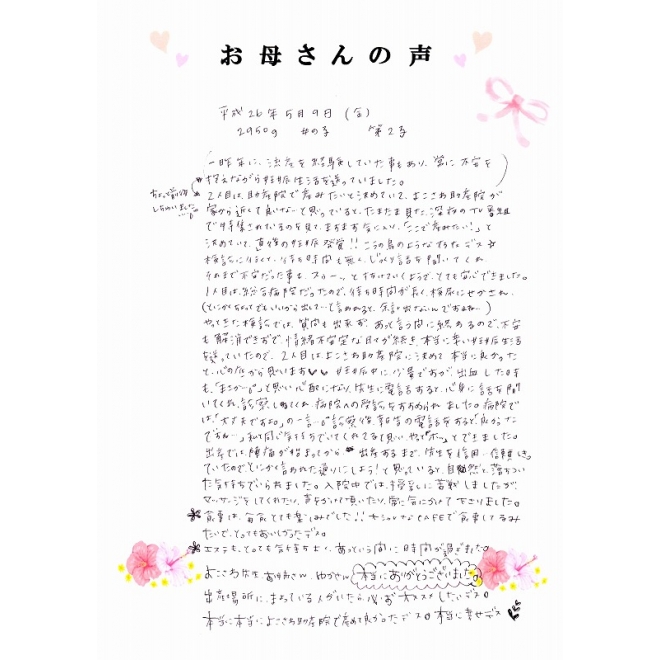 お母さんの声
平成26年5月9日(金)
2950g 女の子 第2子
(一昨年に、流産を経験していた事もあり、常に不安を
抱えながら妊娠生活を送っていました。)
ちょっと前後
しちゃいました
2人目は、助産院で産みたいと決めていて、よこさわ助産院が
家から近くて良いな~と思っていると、たまたま見た深夜のTV番組
で特集されているのを見て、ますます気に入り「ここで産みたい!」と
決めていて、直後の妊娠発覚!!こうの鳥のようなTVデス☆
検診に行くと、待ち時間も無く、じっくり話を聞いてくれ
それまで不安だった事も、スゥーッと抜けていくようで、とても安心できました。
1人目は、総合病院だったので、待ち時間が長く、検尿にせかされ、
(とにかくちょっとでもいいから出して~と言われると、余計出ないんですよねー)
やってきた検診では、質問も出来ず、あっと言う間に終わるので、不安
も解消できずで、情緒不安定な日々が続き、本当に辛い妊娠生活
を送っていたので、2人目はよこさわ助産院に決めて本当に良かった
と、心の底から思います♥♥ 妊娠中に少量ですが、出血した時
も、"まさか…"と思い心配になり、先生に電話すると、心身に話を聞
いてくれ、診察してくれ、病院への受診をすすめられました。病院で
は、「大丈夫ですよ。」の一言…診察後、報告の電話をすると「良かった
ですね~」私と同じ気持ちでいてくれてると思い、やっと"ホッ"とできました。
出産では、陣痛が始まってから出産するまで、先生を信用・信頼して
いたので、とにかく言われた通りにしよう!と思っていると、自然と落ちつい
た気持ちでいられました。入院中では、授乳に苦戦しましたが、
マッサージをしてくれたり、声をかけて頂いたり、常に気にかけて下さりました。
食事は、毎食とても楽しみでした!!オシャレなCAFEで食事してるみ
たいで、とってもおいしかったデス。
エステも、とっても気持ち良く、あっという間に時間が過ぎました。
よこさわ先生、 ゆかさん、本当にありがとうございました。
出産場所に、まよっている人がいたら必ずオススメしたいデス。
本当に本当によこさわ助産院で産めて良かったデス。本当に幸せデス